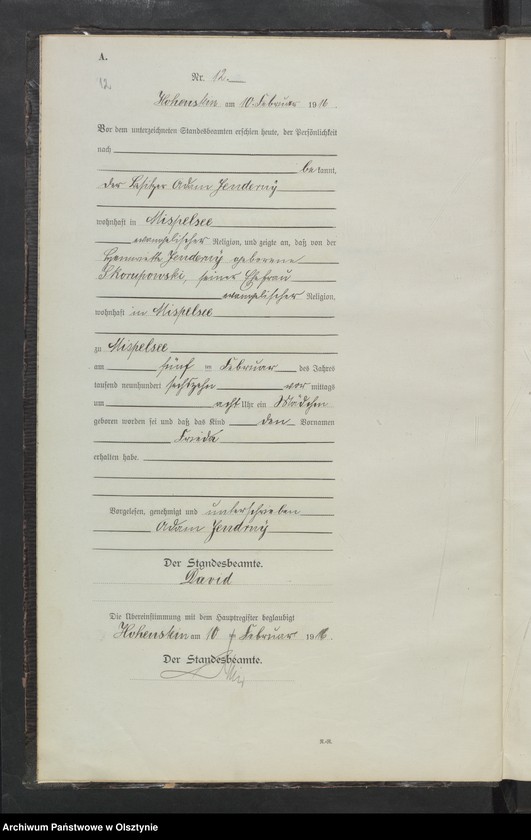 A.
12
Nr. 12.
Hohenstein am 10. Februar 1916.
Vor dem unterzeichneten Standesbeamten erschien heute, der Persönlichkeit
nach
be kannt,
der Besitzer Adam Jendrny
wohnhaft in Mispelsee
evangelischer Religion, und zeigte an, daß von der
Jendrny geborene
Skorupowski, seiner Ehefrau
evangelischer Religion,
wohnhaft in Mispelsee
zu Mispelsee
am fünf ten Februar des Jahres
tausend neunhundert sechszehn vor mittags
um acht Uhr ein Mädchen
geboren worden sei und daß das Kind den Vornamen
Frieda
erhalten habe.
Vorgelesen, genehmigt und unterschrieben
Adam Jendrny
Der Standesbeamte.
David
Die Übereinstimmung mit dem Hauptregister beglaubigt
Hohenstein am 10 Februar 1916.
Der Standesbeamte.
R.-N.
Archiwum Państwowe w Olsztynie